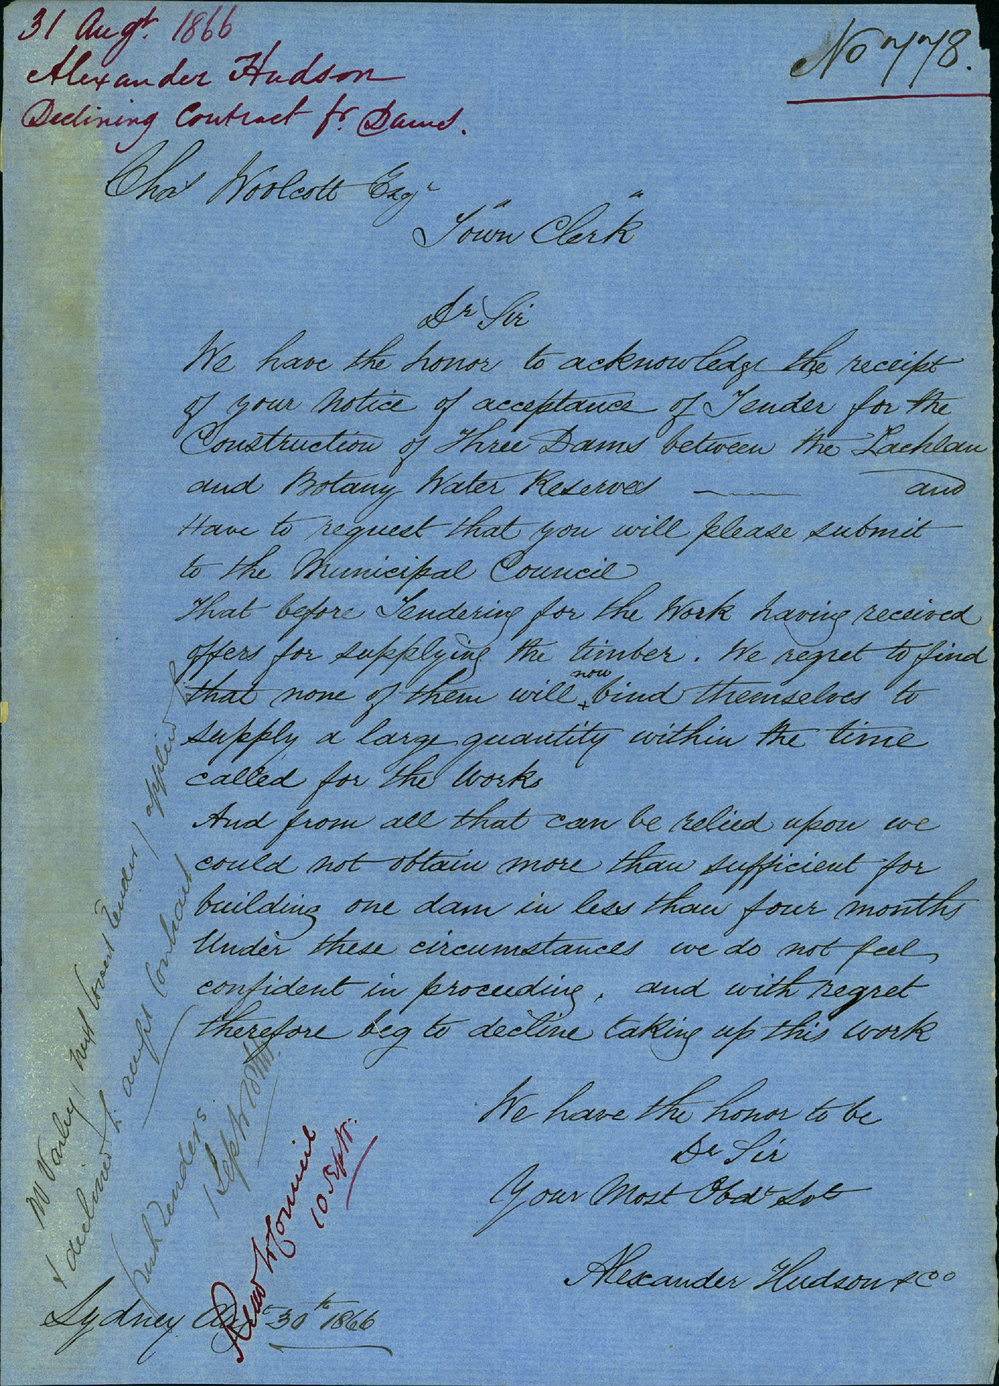 31 Augt. 1866
Alexander Hudson
Declining Contract fr. Dams.
No 778.
Chas Woolcott Esqr
Town Clerk
Dr Sir
We have the honor to acknowledge the receipt
of your Notice of acceptance of Tender for the
Construction of Three Dams between the Lachlan
and Botany Water Reserves —— and
Have to request that you will please submit
to the Municipal Council
That before Tendering for the Work having received
offers for supplying the timber. We regret to find
that none of them will now bind themselves to
supply a large quantity within the time
called for the Works
And from all that can be relied upon we
could not obtain more than sufficient for
building one dam in less than four months
Under these circumstances we do not feel
confident in proceeding, and with regret
therefore beg to decline taking up this work
We have the honor to be
Dr Sir
Your Most Obdt Svt
Alexander Hudson & Co
Sydney Augt 30th 1866
Mr Varley / next lowest Tender / applied
& declined to accept Contract
fresh Tenders
1 Septr
Read to Council
10 Septr.